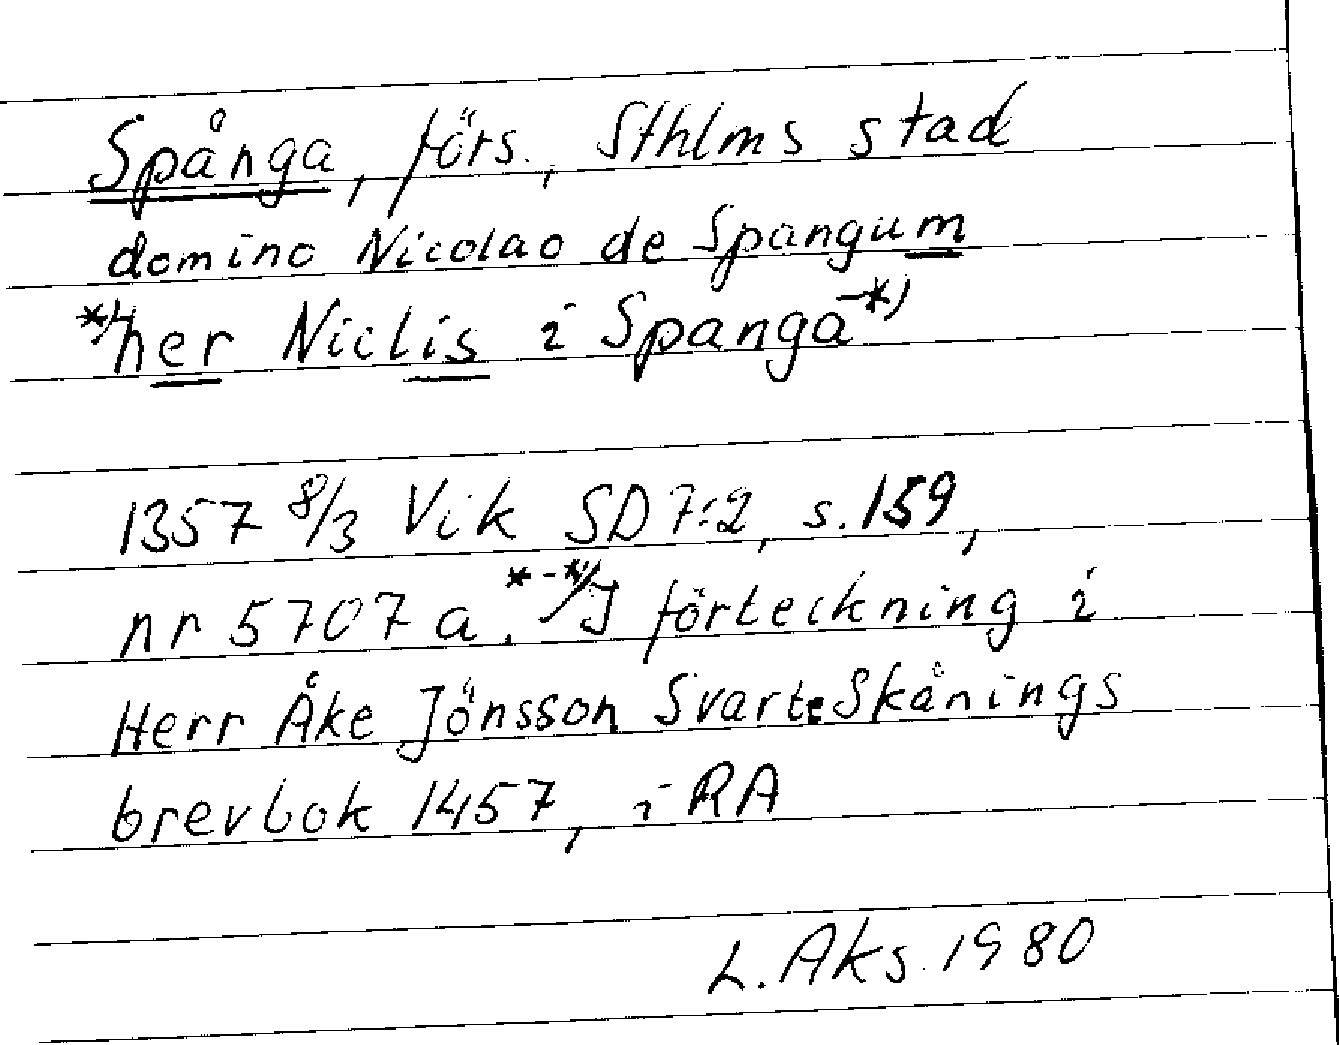 Spånga, förs., Sthlms stad
domino Nicolao de Spangum
*)her Niclis i Spanga-*)
1357 8/3 Vik SD 7:2, s. 159,
nr 5707 a. *-*)I förteckning i
Herr Åke Jönsson Svarte Skånings
brevbok 1457, i RA
L. Aks. 1980